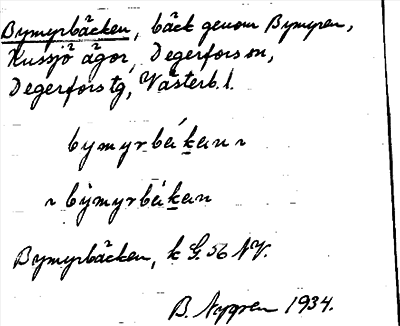 Bymyrbäcken, bäck genom Bymyren,
Kussjö ägor, Degerfors sn,
Degerfors tg, Västerb. l.
bymyrbákɛn ~
~ bỳmyrbákɛn
Bymyrbäcken, k G. 56 NV.
B. Nygren 1934.